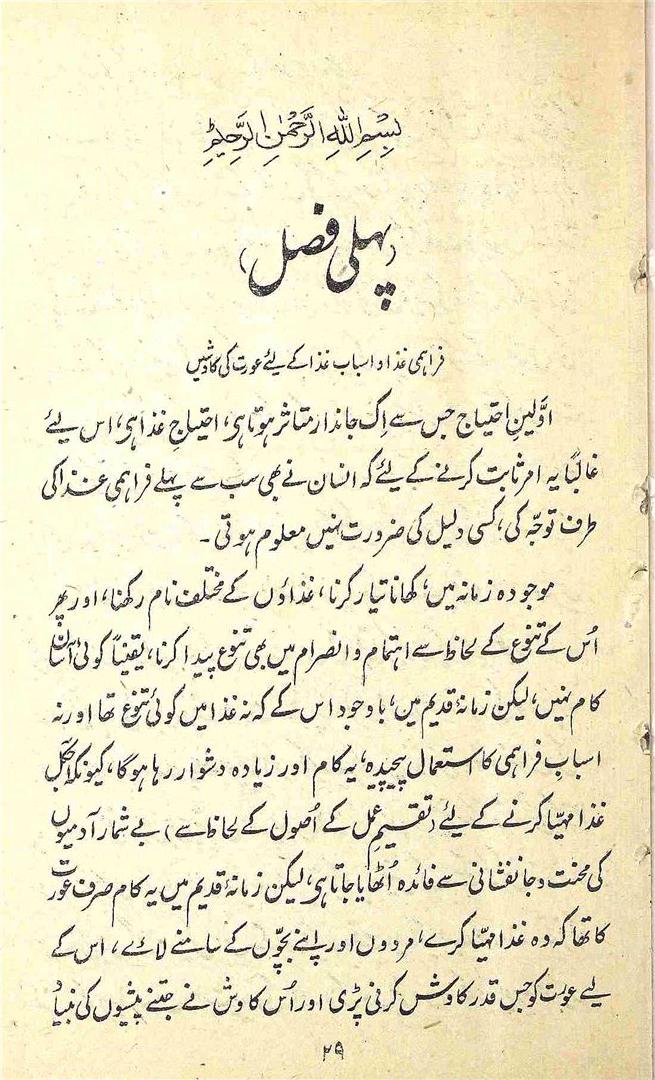 بِسْمِ اللهِ الرَّحْمٰنِ الرَّحِيْمِ
(پہلی فصل)
فراہمی غذا و اسباب غذا کے لئے عورت کی کاوشیں
اوّلین احتیاج جس سے اِک جاندار متاثر ہوتا ہی، احتیاجِ غذا ہی، اس لئے
غالبًا یہ امر ثابت کرنے کے لئے کہ انسان نے بھی سب سے پہلے فراہمیِ غذا کی
طرف توجّہ کی، کسی دلیل کی ضرورت نہیں معلوم ہوتی۔
موجودہ زمانہ میں، کھانا تیار کرنا، غذاؤں کے مختلف نام رکھنا، اور پھر
اُس کے تنوع کے لحاظ سے اہتمام و انصرام میں بھی تنوع پیدا کرنا، یقینًا کوئی آسان
کام نہیں، لیکن زمانۂ قدیم میں، باوجود اس کے کہ نہ غذا میں کوئی تنوع تھا اور نہ
اسبابِ فراہمی کا استعمال پیچیدہ، یہ کام اور زیادہ دشوار رہا ہوگا، کیونکہ آجکل
غذا مہیّا کرنے کے لئے (تقسیمِ عمل کے اُصول کے لحاظ سے) بے شمار آدمیوں
کی محنت و جانفشانی سے فائدہ اُٹھایا جاتا ہی، لیکن زمانۂ قدیم میں یہ کام صرف عورت
کا تھا کہ وہ غذا مہیّا کرے، مردوں اور اپنے بچّوں کے سامنے لائے، اس کے
لیے عورت کو جس قدر کاوش کرنی پڑی اور اُس کاوش نے جتنے پیشوں کی بنیاد
۲۹